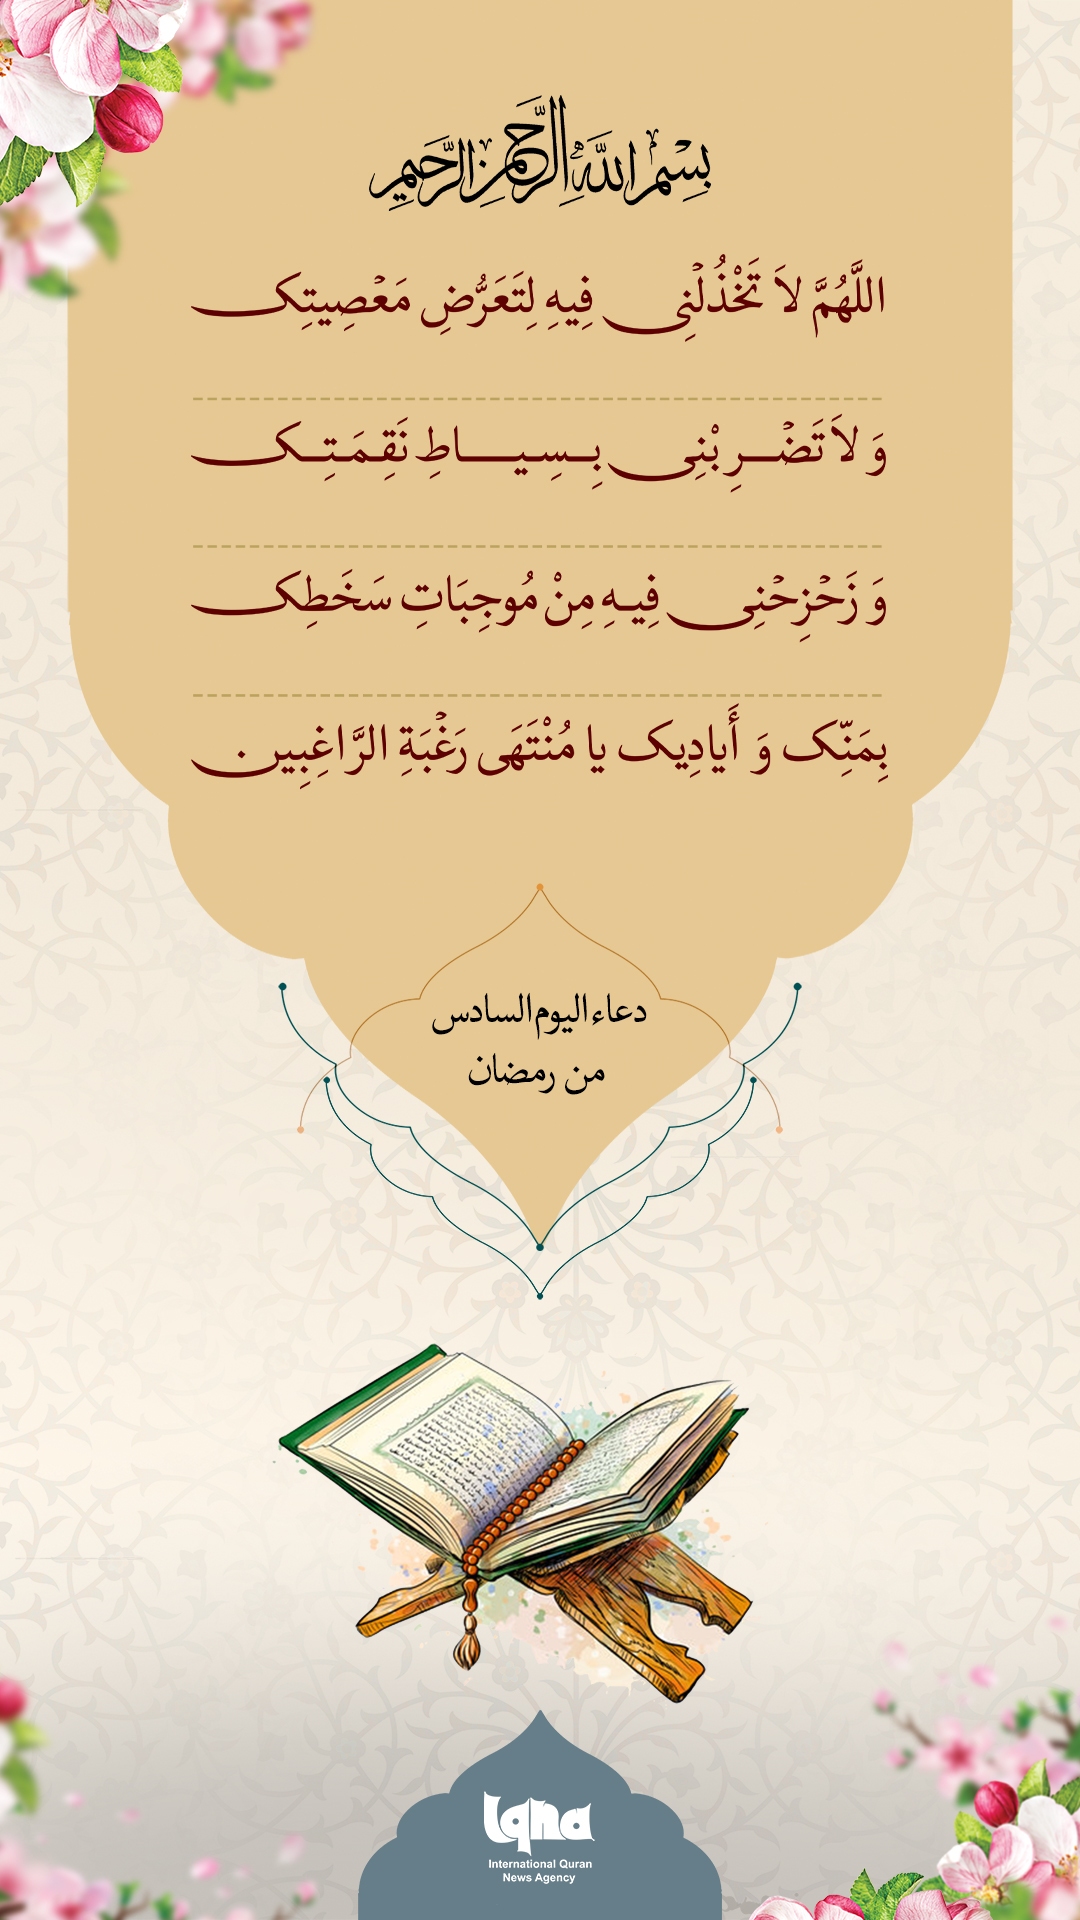 بِسْمِ اللَّهِ الرَّحْمنِ الرَّحيمِ
اللَّهُمَّ لاَ تَخْذُلْنِی فِیهِ لِتَعَرُّضِ مَعْصِیَتِک
وَ لاَ تَضْرِبْنِی بِسِیَاطِ نَقِمَتِک
وَ زَحْزِحْنِی فِیهِ مِنْ مُوجِبَاتِ سَخَطِک
بِمَنِّک وَ أَیادِیک یا مُنْتَهَى رَغْبَةِ الرَّاغِبِین.
دعاء اليوم السادس
من رمضان
Iqna
International Quran
News Agency